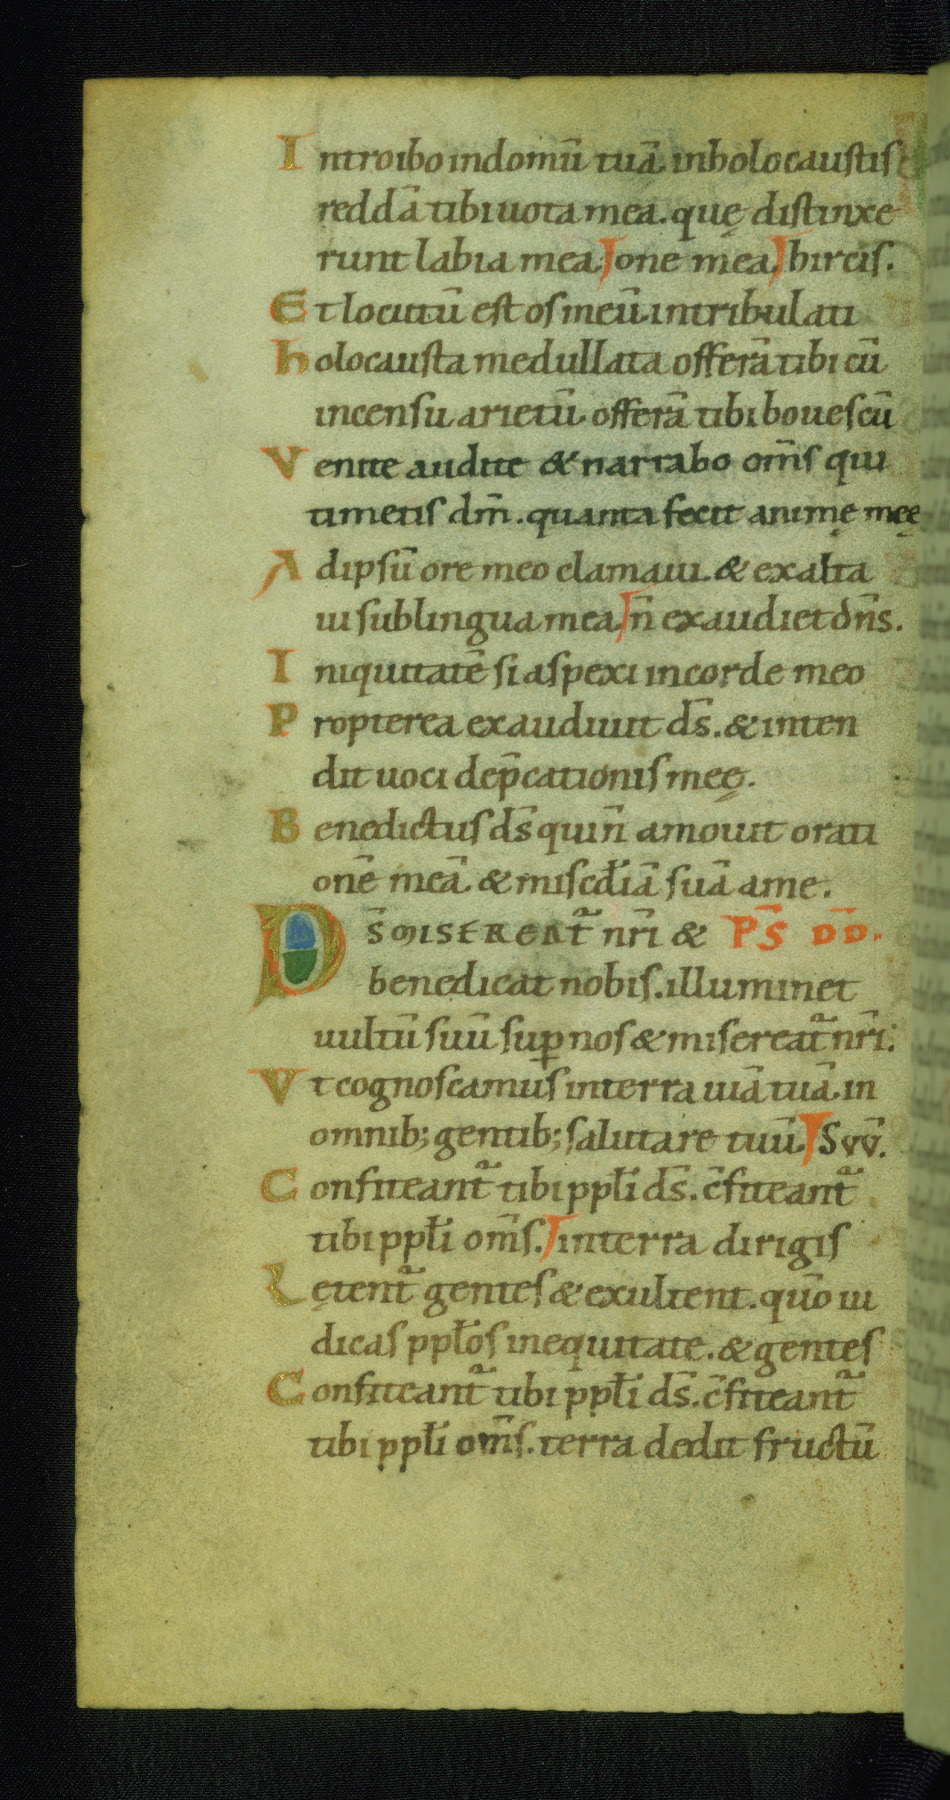 Introibo in domū tuā. inholocaustis
reddā tibi uota mea. quę distinxe
runt labia mea. one mea. hircis.
Et locutū est os meū. intribulati
holocausta medullata offerā tibi cū
incensu arietū. offerā tibi boues cū
Venite audite & narrabo om̄s qui
timetis dm̄. quanta fecit animę meę
Ad ipsū ore meo clamaui. & exalta
ui sub lingua mea. n̄ exaudiet dn̄s.
Iniquitatē si aspexi in corde meo
Propterea exaudiuit ds̄. & inten
dit uoci dep̄cationis meę.
Benedictus ds̄ qui n̄ amouit orati
onē meā. & miscđiā suā a me.
Ds̄ misereat᷑ nr̄i & PS̄ DD̄.
benedicat nobis. illuminet
uultū suū suꝑ nos & misereat᷑ nr̄i.
Vt cognoscamus interra uiā tuā. in
omnib; gentib; salutare tuū. Svv̄.
Confiteant᷑ tibi ppłi ds̄. c̄fiteant᷑
tibi ppłi om̄s. interra dirigis
Lętent᷑ gentes & exultent. quō iu
dicas ppłos in equitate. & gentes
Confiteant᷑ tibi ppłi ds̄. c̄fiteant᷑
tibi ppłi om̄s. terra dedit fructū